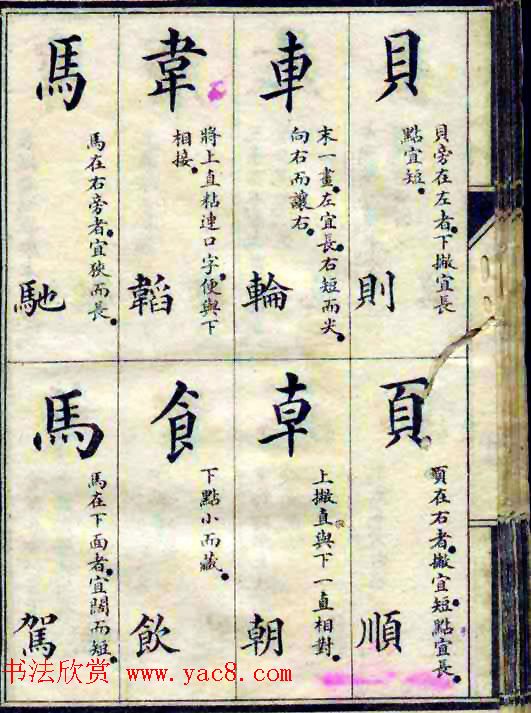 貝
貝旁在左者。下撇宜長
點宜短。
則
車
末一畫。左宜長。右短而尖。
向右而讓右。
輪
韋
將上直粘連口字。便與下
相接。
韜
馬
馬在右旁者。宜狹而長。
馳
頁
頁在右者。撇宜短。點宜長。
順
𠦝
上撇直與下一直相對。
朝
飠
下點小而藏。
飲
馬
馬在下面者。宜闊而短。
駕
书法欣赏 www.yac8.com